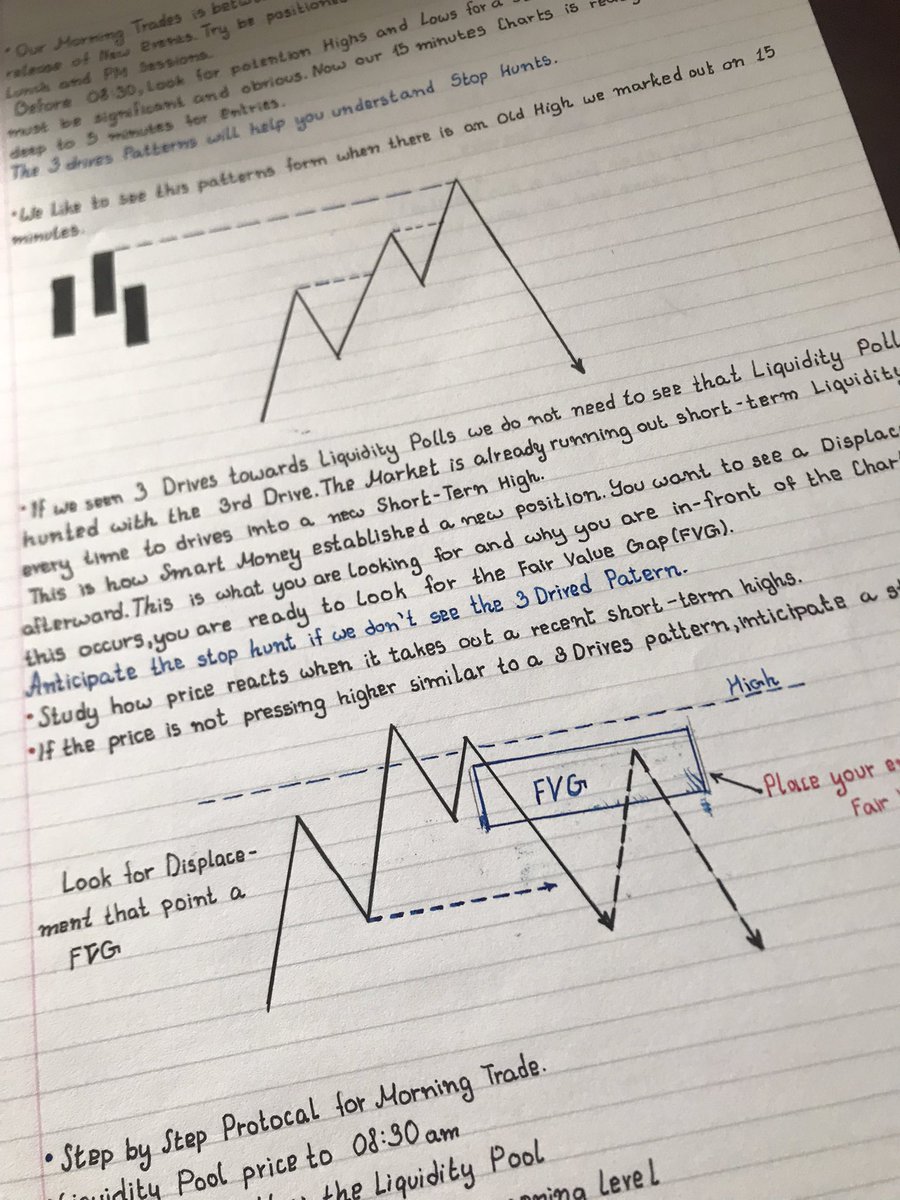 • Our Morning Trades is
release of New Events. Try be
Lunch and PM Sessions.
Before 08:30, Look for potention Highs and Lows for a
must be significant and obvious. Now our 15 minutes Charts is
deap to 5 minutes for Entries.
The 3 drives Patterns will help you understand Stop Hunts.
• We Like to see this patterns form when there is an Old High we marked out on 15
minutes.
• If we seen 3 Drives towards Liquidity Polls we do not need to see that Liquidity Poll
hunted with the 3rd Drive. The Market is already running out short-term Liquidity
every time to drives into a new Short-Tern High.
This is how Smart Money established a new position. You want to see a
afterward. This is what you are looking for and why you are in-front of the
this occurs, you are ready to look for the Fair Value Gap (FVG).
Anticipate the stop hunt if we don't see the 3 Drived Patern.
• Study how price reacts when it takes out a recent short-term highs.
• If the price is not pressing higher similar to a 3 Drives pattern, inticipate a
High
FVG
Place your
Fair
Look for Displace-
ment that point a
FVG
• Step by Step Protocal for Morning Trade.
Pool price to 08:30 am
the Liquidity Pool
Level